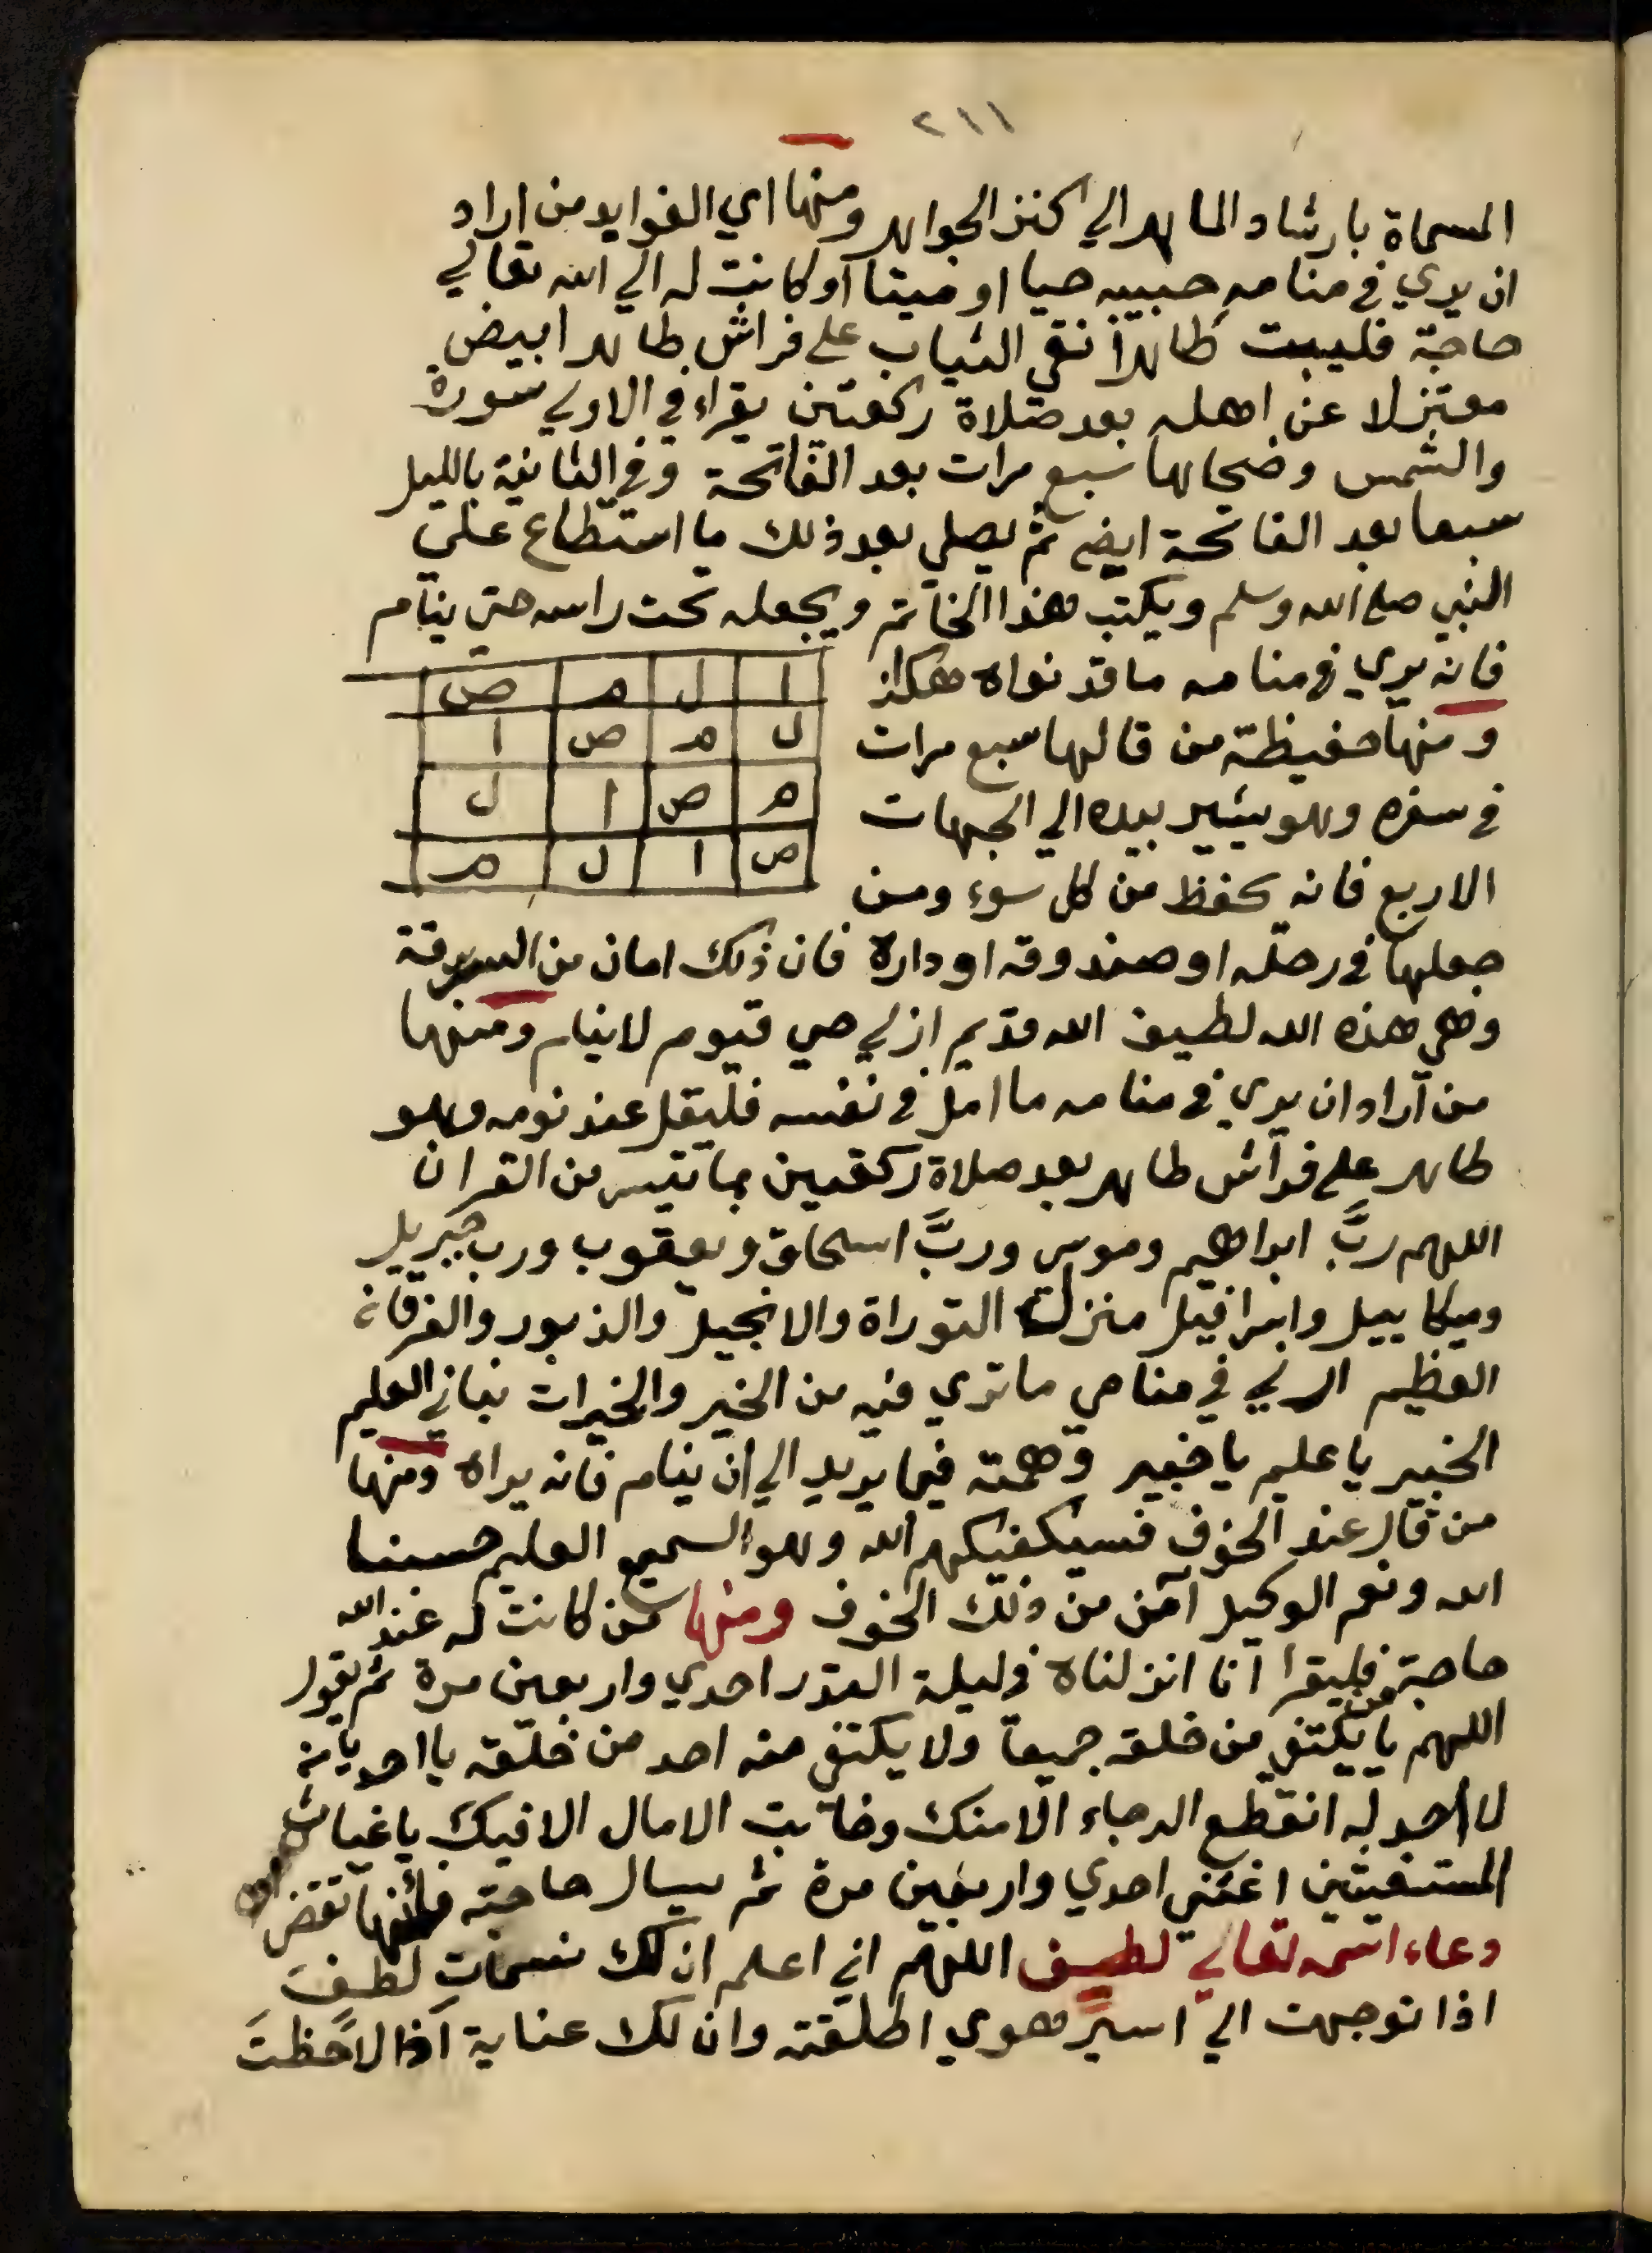 ٢١١
المسماة بارشاد الماهر الي كنز الجواهر ومنها اي الفوايد من اراد
ان يري في منامه حبيبه حيا او ميتا او كانت له الي الله تعالي
حاجة فليبت طاهرا نقي الثياب علي فراش طاهر ابيض
معتزلا عن اهله بعد صلاة ركعتين يقراء في الاولي سورة
والشمس وضحاها سبع مرات بعد الفاتحة وفي الثانية بالليل
سبعا بعد الفاتحة ايضا ثم يصلي بعد ذلك ما استطاع علي
النبي صلي الله وسلم ويكتب هذا الخاتم ويجعله تحت راسه حتي ينام
فانه يري في منامه ما قد نواه هكذا
ا ل م ص
ل م ص ا
م ص ا ل
ص ا ل م
ومنها حفيظة من قالها سبع مرات
في سفره وهو يشير بيده الي الجهات
الاربع فانه يحفظ من كل سوء ومن
جعلها في رحله او صندوقه او داره فان ذلك امان من السرقة
وهي هذه الله لطيف الله قديم ازلي حي قيوم لا ينام ومنها
من اراد ان يري في منامه ما امل في نفسه فليقل عند نومه وهو
طاهر علي فراش طاهر بعد صلاة ركعتين بما تيسر من القران
اللهم ربَّ ابراهيم وموسي وربَّ اسحاق ويعقوب ورب جبريل
وميكاييل واسرافيل منزل التوراة والانجيل والزبور والفرقان
العظيم ارني في منامي ما تري فيه من الخير والخيرات نباني العليم
الخبير يا عليم يا خبير وهمته فيما يريد الي ان ينام فانه يراه ومنها
من قال عند الخوف فسيكفيكهم الله وهو السميع العليم حسبنا
الله ونعم الوكيل آمن من ذلك الخوف ومنها من كانت له عند الله
حاجة فليقرا انا انزلناه في ليلة القدر احدي واربعين مرة ثم يقول
اللهم يا من يكتفي من خلقه جميعا ولا يكتفي منه احد من خلقه يا احد يا من
لا احد له انقطع الرجاء الا منك وخابت الامال الا فيك يا غياث
المستغيثين اغثني احدي واربعين مرة ثم يسال حاجته فانها تقضي
دعاء اسمه تعالي لطيف اللهم اني اعلم ان لك نسماتِ لطف
اذا توجهت الي اسيرِ هوي اطلقته وان لك عناية اذا لاحَظتَ